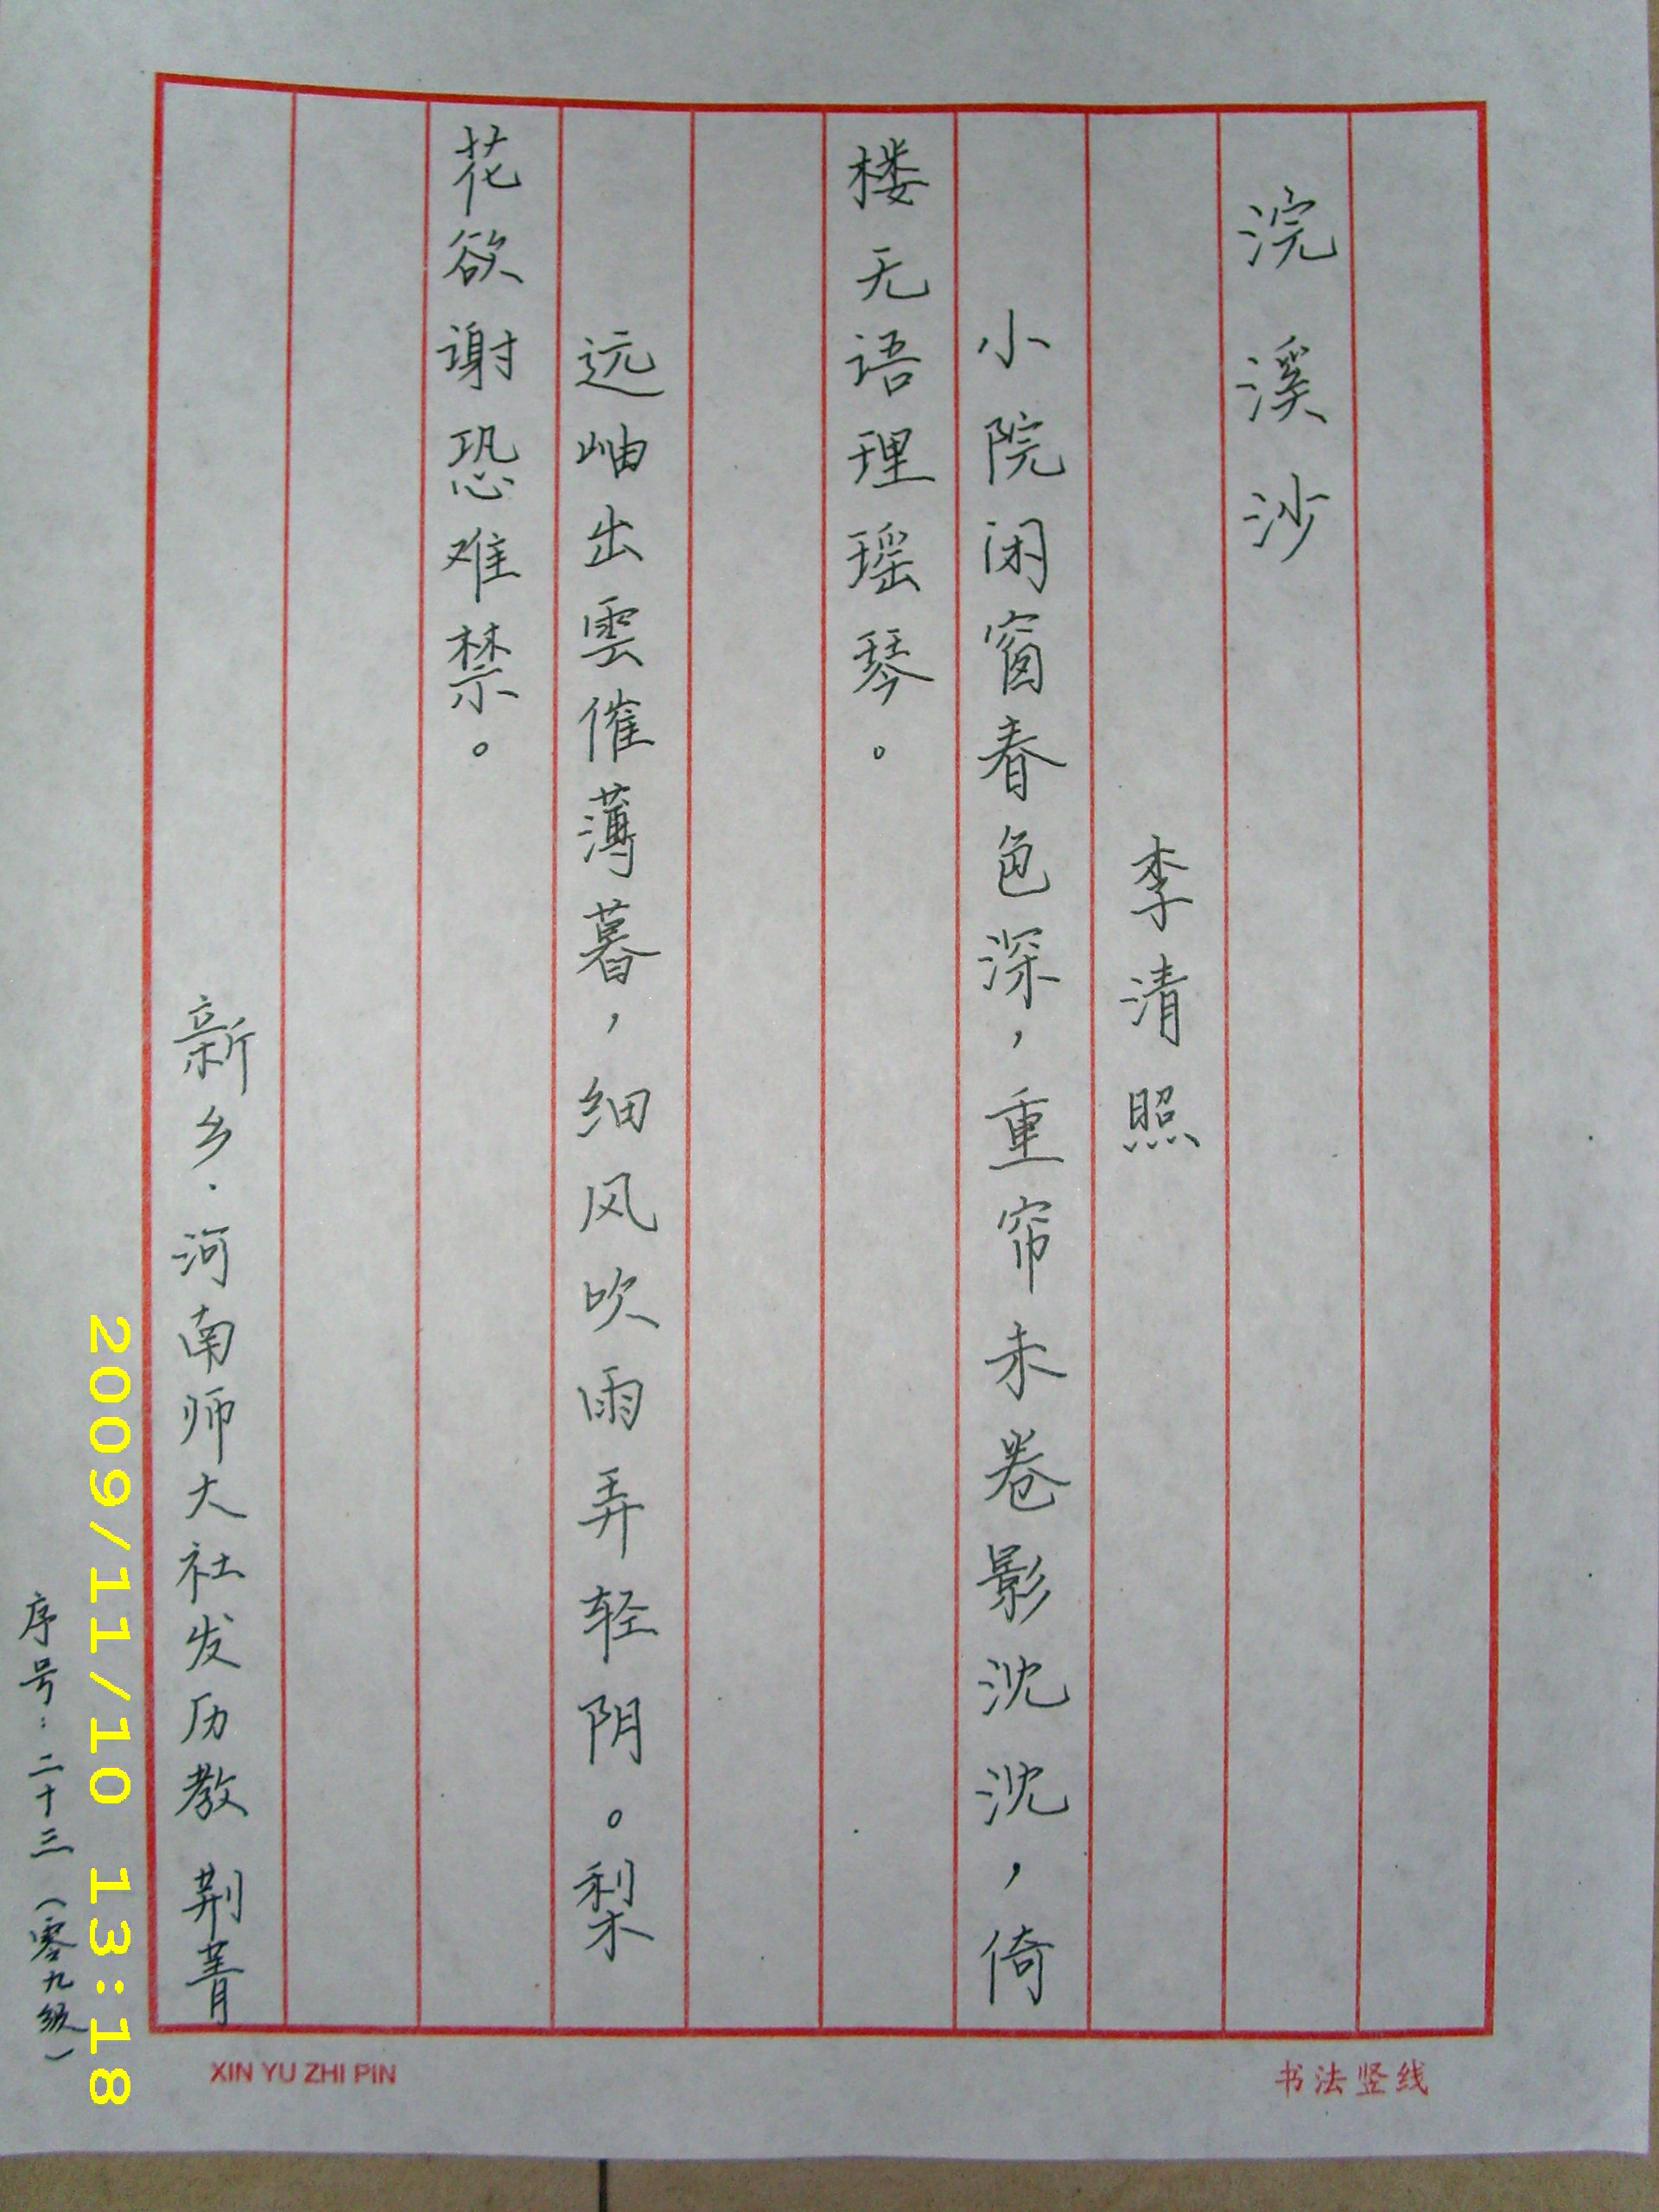 浣溪沙
李清照
小院闲窗春色深，重帘未卷影沈沈，倚
楼无语理瑶琴。
远岫出雲催薄暮，细风吹雨弄轻阴。梨
花欲谢恐难禁。
新乡·河南师大社发历教 荆菁
序号：二十三（零九级）
2009/11/10 13:18
书法竖线
XIN YU ZHI PIN